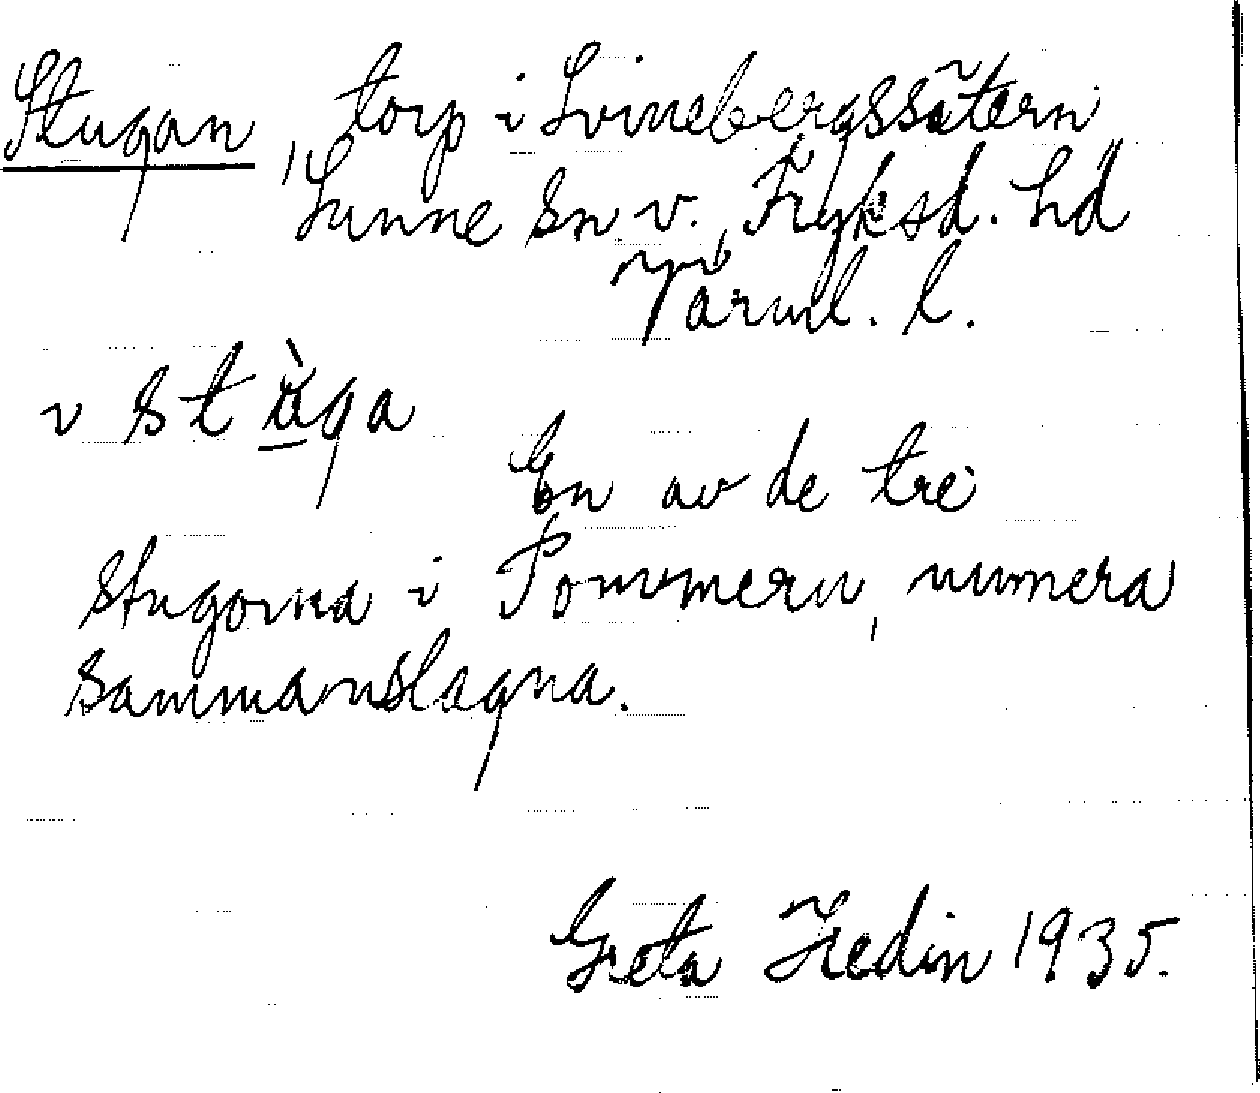 Stugan, torp i Svinebergssätern
Sunne sn v., Fryksd. hd
Värml. l.
v stὰga
En av de tre
stugorna i Pommern, numera
sammanslagna.
Greta Hedin 1935.